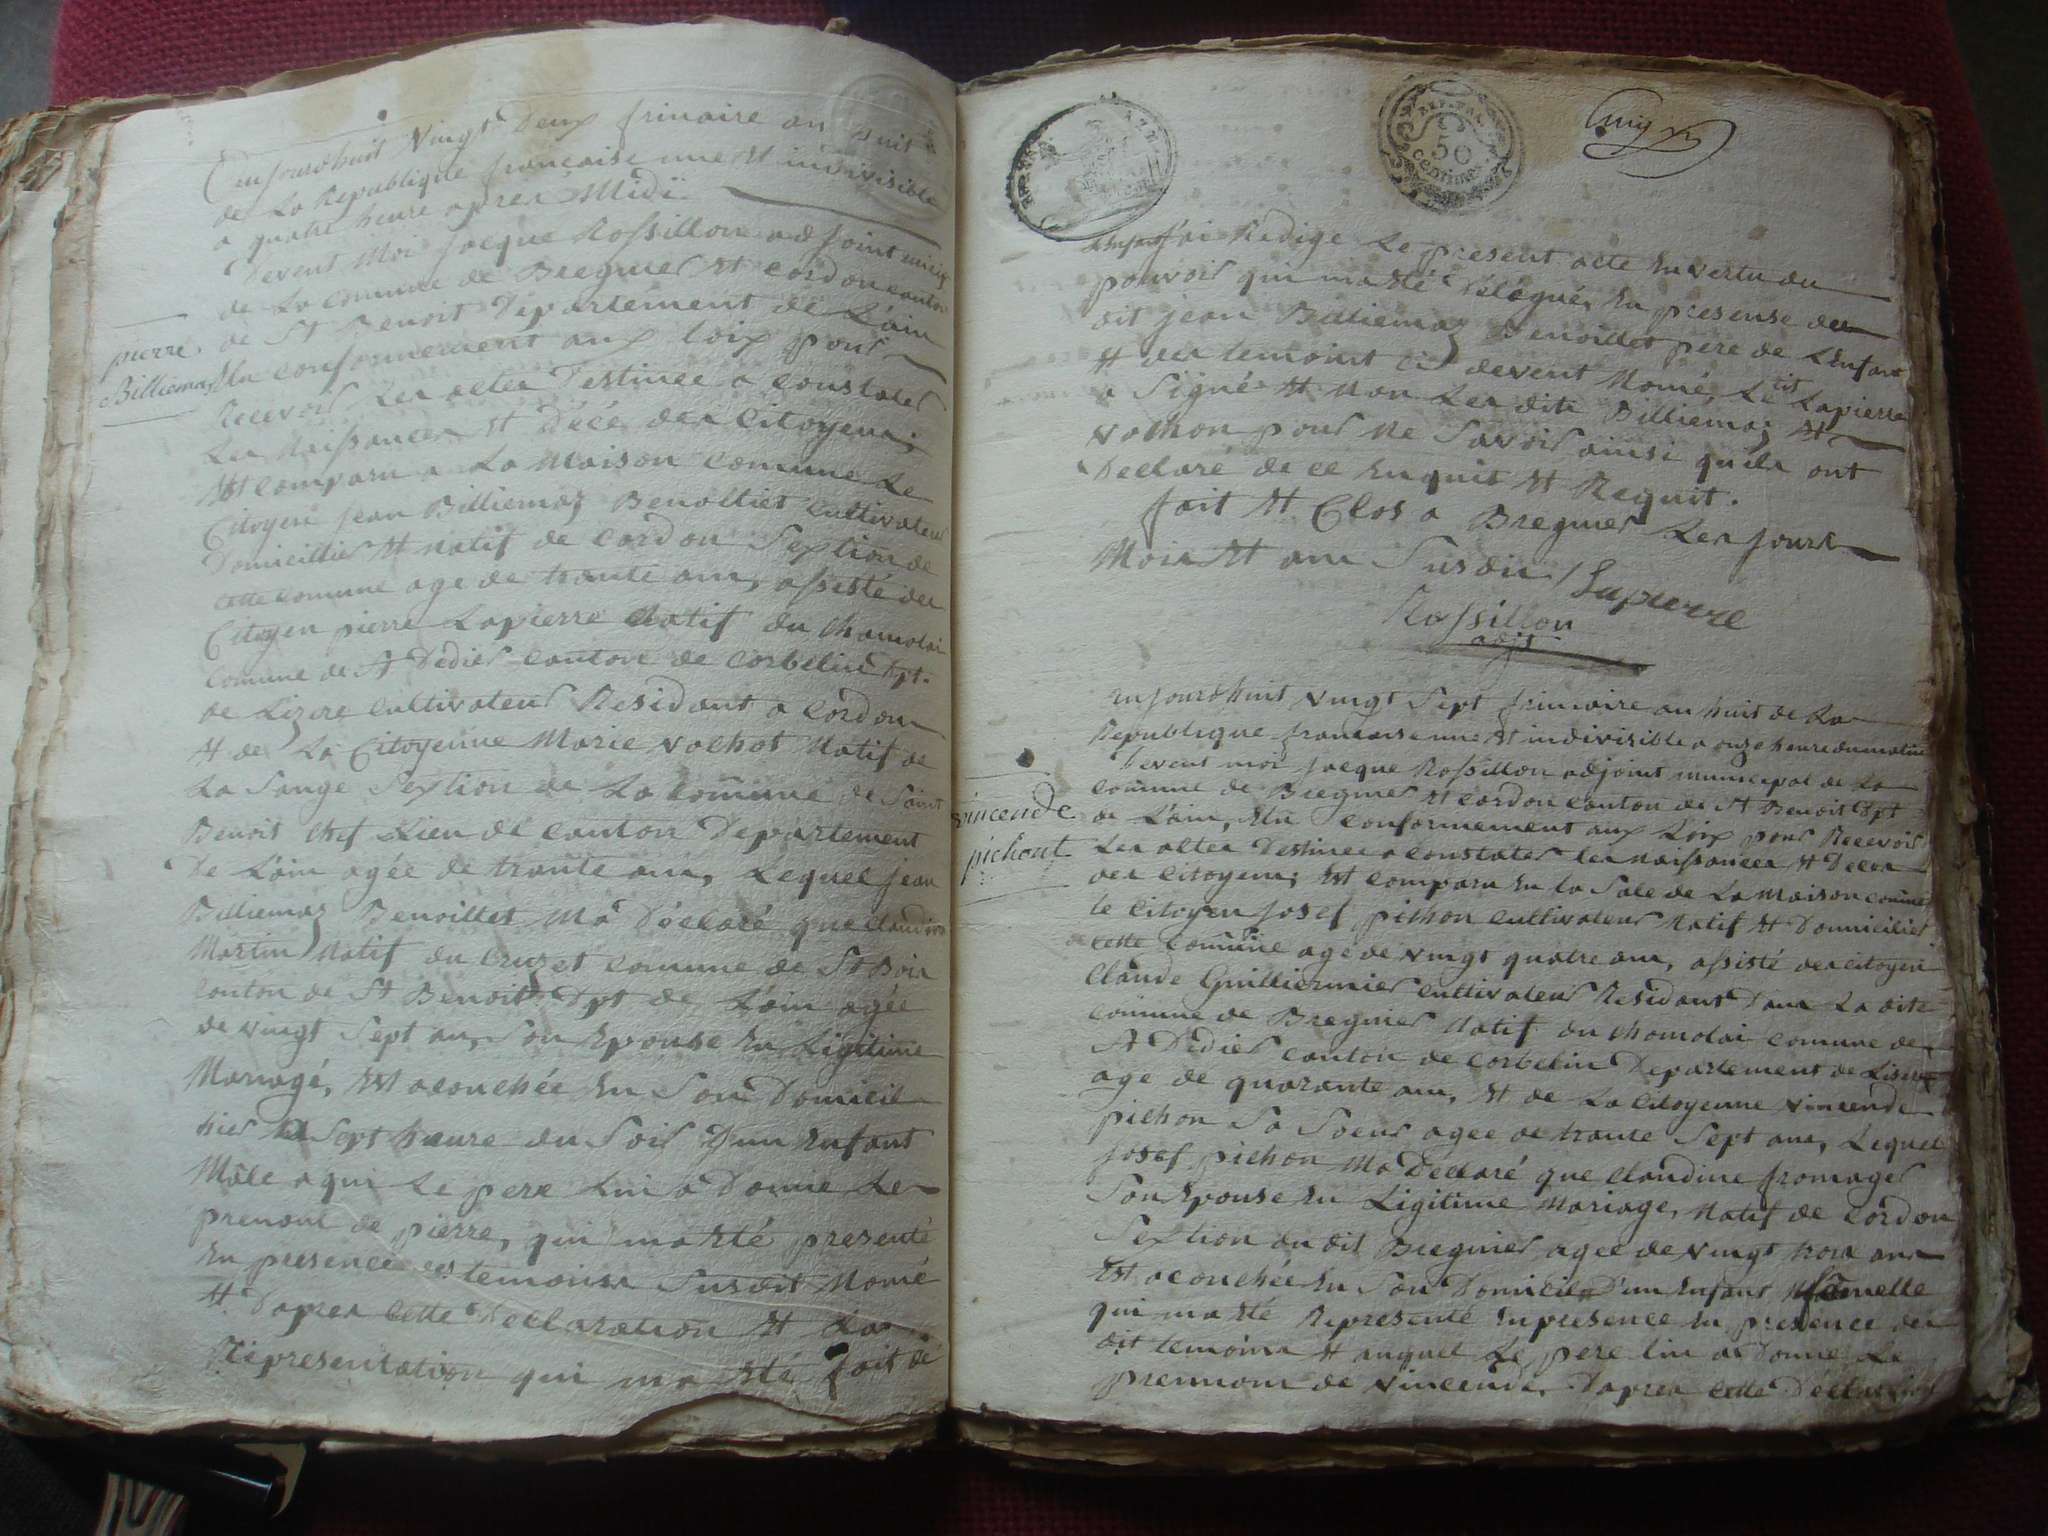 Aujourdhuit vingt Deux frimaire an huit
de La Republique francaise une et indivisible
a quatre heure apres Midi.
Devent Moi Jacque Rossillon adjoint
de La comune de Bregnier et Cordon canton
de St Benoit Departement de Lain
pierre
Billiemaz
Elu conformement aux loix pour
Recevoir Les actes Destinee a constater
Les Naissances et Décé des Citoyens;
Est comparu a La Maison comune Le
Citoyen Jean Billiemaz Benoillet cultivateur
Domicillier et natif de Cordon Sextion de
cette comune age de trante ans, assisté des
Citoyen pierre Lapierre Natif du Chamolai
comune de St Didier canton de Corbelin Dpt.
de Lizere cultivateur Residant a Cordon
et de La Citoyenne Marie vachot Natif de
La Sange Sextion de La comune de Saint
Benoit chef Lieu de canton Departement
De Lain agée de trante ans, Lequel Jean
Billiemaz Benoillet Ma Déclaré que Claudine
Martin Natif du Cruzet comune de St Bois
canton de St Benoit Dpt de Lain agée
de vingt Sept ans, Son Epouse En Ligitime
Mariagé, Est acouchée En Son Domicil
hier a Sept heure du Soir Dun Enfant
Mâle a qui Le pere Lui a Donne Le
prenont de pierre, qui ma eté presenté
En presence des temoins Susdit Nomé
et Dapres Cette Declaration et La
Représentation qui ma eté fait de
REP. FRA.
50
centimes
Lenfant Jai Redige Le present acte En vertu du
pouvoir qui ma eté Délégué, En presense du
dit Jean Billiemaz Benoillet pere de Lenfant
et des temoint ci devent Nomé, Le dit Lapierre
a Signé et Non Les dits Billiemaz et
vachon pour Ne Savoir ainsi quils ont
Déclaré de ce Enquit et Requit.
fait et Clos a Bregnier Les Jours
Mois et ans Susdit Lapierre
Rossillon
adjt
Aujourdhuit vingt Sept frimaire an huit de La
Republique francaise une et indivisible a onze heure du matin
Devent moi Jacque Rossillon adjoint municipal de La
comune de Bregnier et Cordon canton de St Benoit Dpt
vincende
pichont
de Lain, Elu conformement aux Loix pour Recevoir
Les actes Destinee a constater les naissances et Deces
des Citoyens; Est comparu En la Sale de La Maison comune
le Citoyen Josef pichon cultivateur Natif et Domicilier
cette comune age de vingt quatre ans, assisté des Citoyen
Claude Guilliermier cultivateur Residant Dans La dite
comune de Bregnier Natif du Chamolai comune de
St Didier canton de Corbelin Departement de Lisere
age de quarante ans, et de La Citoyenne vincende
pichon Sa Soeur agee de trante Sept ans, Lequel
Josef pichon Ma Déclaré que Claudine fromager
Son Epouse En Ligitime Mariage, Natif de Cordon
Sextion du dit Bregnier agee de vingt trois ans
Est acouchée En Son Domicil D'un Enfant famelle
qui ma eté Représenté En presence En presence des
dit temoins et auquel Le pere lui a Donne Le
prennom de vincende, Dapres Cette Déclaration